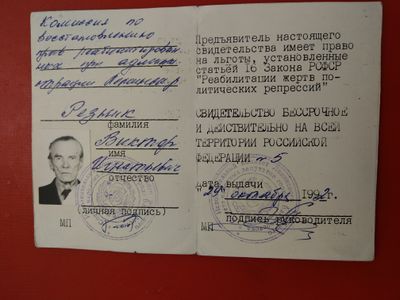 Комиссия по
восстановлению
прав реабилитирован-
ных при админи-
страции
Резник
фамилия
Виктор
имя
Игнатьевич
отчество
(личная подпись)
МП
Предъявитель настоящего
свидетельства имеет право
на льготы, установленные
статьей 16 Закона РСФСР
"Реабилитации жертв по-
литических репрессий"
СВИДЕТЕЛЬСТВО БЕССРОЧНОЕ
И ДЕЙСТВИТЕЛЬНО НА ВСЕЙ
ТЕРРИТОРИИ РОССИЙСКОЙ
ФЕДЕРАЦИИ
дата выдачи
октября 1992
МП подпись руководителя